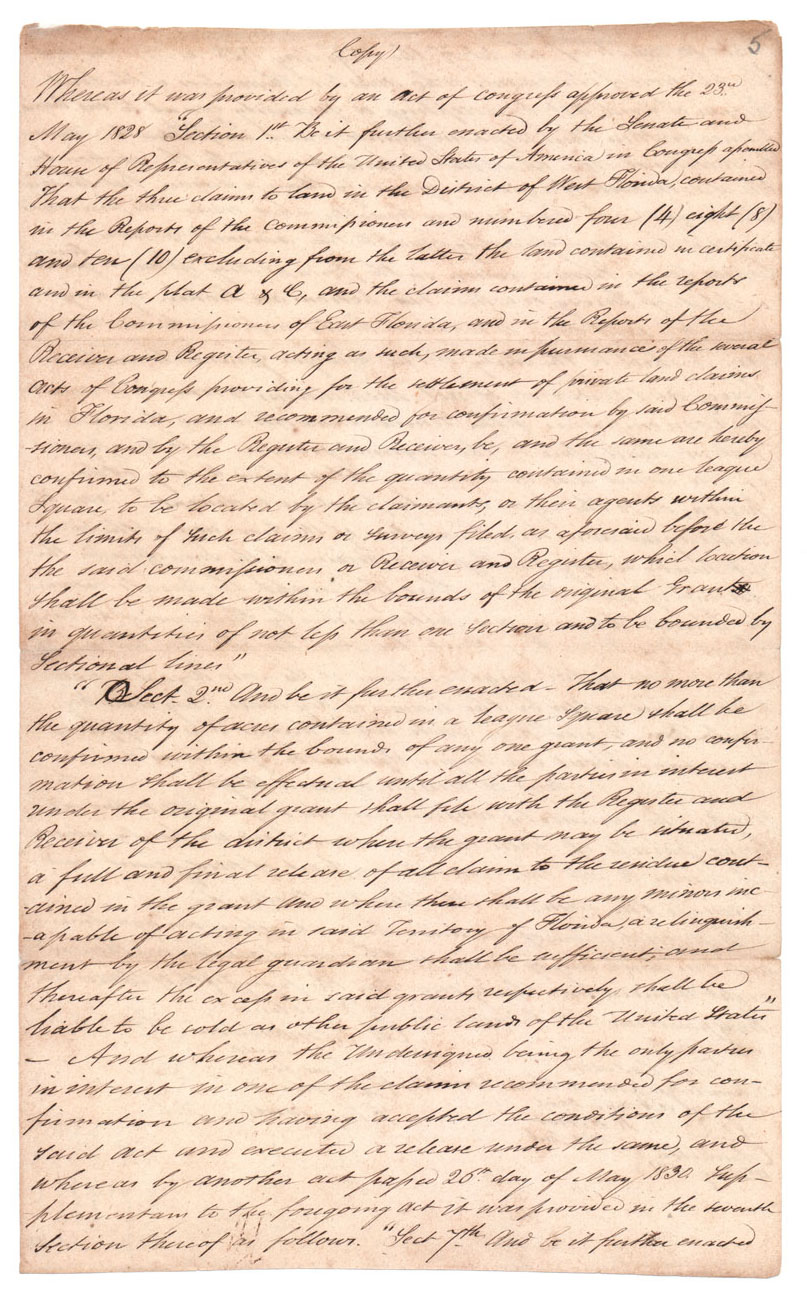 Copy)
5
Whereas it was provided by an act of congress approved the 23rd
May 1828 "Section 1st. Be it further enacted by the Senate and
House of Representatives of the United States of America in Congress assembled
That the three claims to land in the District of West Florida, contained
in the Reports of the Commissioners and numbered four (4) eight (8)
and ten (10) excluding from the latter the land contained in certificate
and in the plat A & C, and the claims contained in the reports
of the Commissioners of East Florida, and in the Reports of the
Receiver and Register, acting as such, made in pursuance of the several
acts of Congress providing for the settlement of private land claims
in Florida, and recommended for confirmation by said Commis-
-sioners, and by the Register and Receiver, be, and the same are hereby
confirmed to the extent of the quantity contained in one league
Square, to be located by the claimants, or their agents within
the limits of such claims or surveys filed, as aforesaid before the
the said commissioners or Receiver and Register, which location
shall be made within the bounds of the original Grants
in quantities of not less than one Section and to be bounded by
Sectional lines"
"Sect. 2nd And be it further enacted - That no more than
the quantity of acres contained in a league Square shall be
confirmed within the bounds of any one grant, and no confir-
mation shall be effectual until all the parties in interest
under the original grant shall file with the Register and
Receiver of the district where the grant may be situated,
a full and final release of all claim to the residue cont-
-ained in the grant and where there shall be any minors inc-
-apable of acting in said Territory of Florida, a relinquish-
ment by the legal guardian shall be sufficient; and
thereafter the excess in said grants respectively shall be
liable to be sold as other public lands of the United States"
- And whereas the Undersigned being the only parties
in interest in one of the claims recommended for con-
firmation and having accepted the conditions of the
said act and executed a release under the same, and
whereas by another act passed 26th day of May 1830. Sup-
-plementary to the foregoing act it was provided in the seventh
Section thereof as follows. "Sect 7th And be it further enacted